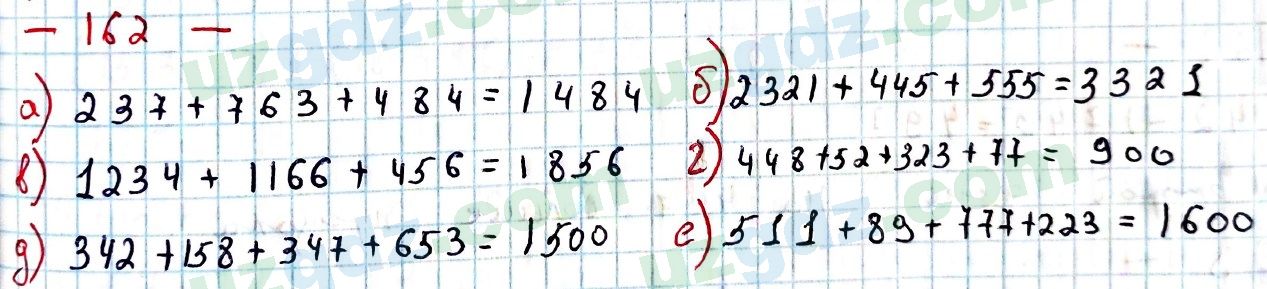 - 162 -
а) 237 + 763 + 484 = 1484 б) 2321 + 445 + 555 = 3321
в) 1234 + 1166 + 456 = 1856 г) 448 + 52 + 323 + 77 = 900
д) 342 + 158 + 347 + 653 = 1500 е) 511 + 89 + 777 + 223 = 1600
uzgdz.com
uzgdz.com
uzgdz.com
uzgdz.com